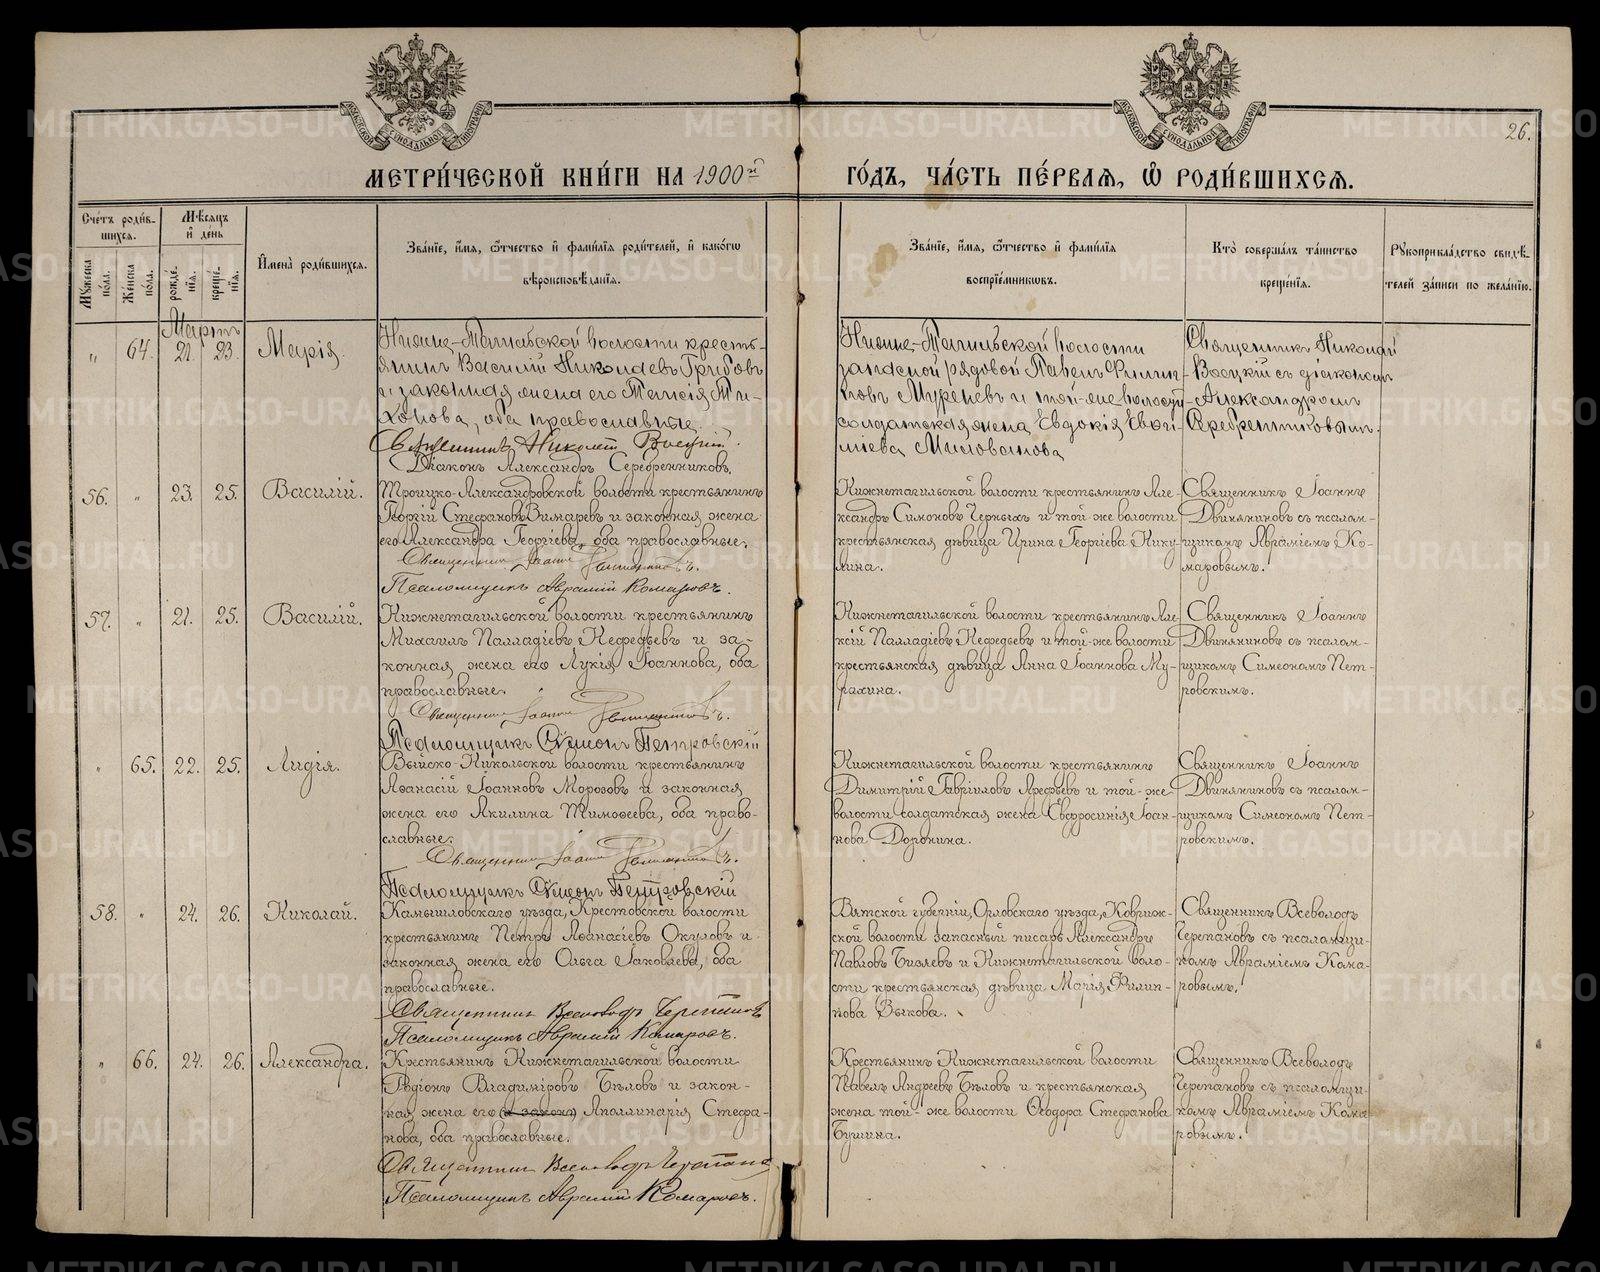 26.
МЕТРИ́ЧЕСКОЙ КНИ́ГИ НА 1900й
ГО́ДЪ, ЧА́СТЬ ПЕ́РВАЯ, Ѡ РОДИ́ВШИХСЯ.
Сче́тъ роди́в-
шихся.
Мѣ́сяцъ
и де́нь
Му́жеска по́ла.
Же́нска по́ла.
рожде́нїя.
креще́нїя.
И҆мена̀ роди́вшихся.
Зва́нїе, и҆́мя, ѻ҆́тчество и҆ фами́лїя роди́телей, и҆ како́гѡ
вѣроисповѣ́данїя.
Зва́нїе, и҆́мя, ѻ҆́тчество и҆ фами́лїя
воспрїе́мниковъ.
Кто̀ соверша́лъ та́инство
креще́нїя.
Рукоприкла́дство свидѣ́-
телей за́писи по жела́нїю.
Мартъ
" 64. 21. 23. Марія.
Нижне-Тагильской волости кресть-
янинъ Василій Николаевъ Грибовъ
и законная жена его Таисія Ти-
хонова, оба православные.
Священникъ Николай
Діаконъ Александръ Серебренниковъ.
Нижне-Тагильской волости
запасной рядовой Павелъ Филип-
повъ Муреневъ и той-же волости
солдатская жена Евдокія Евѳі-
міева Милованова
Священникъ Николай
съ діакономъ
Александромъ
Серебренниковымъ.
56. " 23. 25. Василій.
Троицко-Александровской волости крестьянинъ
Георгій Стефановъ Зимаревъ и законная жена
его Александра Георгіева, оба православные.
Священникъ Іоаннъ Двиняниновъ.
Псаломщикъ Аврамій Комаровъ.
Нижнетагильской волости крестьянинъ Але-
ксандръ Симоновъ Черныхъ и той же волости
крестьянская дѣвица Ирина Георгіева Нику-
лина.
Священникъ Іоаннъ
Двиняниновъ съ псалом-
щикомъ Авраміемъ Ко-
маровымъ.
57. " 21. 25. Василій.
Нижнетагильской волости крестьянинъ
Михаилъ Палладіевъ Нефедьевъ и за-
конная жена его Лукія Іоаннова, оба
православные.
Священникъ Іоаннъ Двиняниновъ.
Псаломщикъ Симеонъ Петровскій
Нижнетагильской волости крестьянинъ Але-
ксій Палладіевъ Нефедьевъ и той-же волости
крестьянская дѣвица Анна Іоаннова Му-
рахина.
Священникъ Іоаннъ
Двиняниновъ съ псалом-
щикомъ Симеономъ Пет-
ровскимъ.
" 65. 22. 25. Лидія.
Выйско-Никольской волости крестьянинъ
Аѳанасій Іоанновъ Морозовъ и законная
жена его Акилина Тимоѳеева, оба право-
славные.
Священникъ Іоаннъ Двиняниновъ.
Псаломщикъ Симеонъ Петровскій
Нижнетагильской волости крестьянинъ
Димитрій Гавріиловъ Арефьевъ и той-же
волости солдатская жена Евфросинія Іоан-
нова Доронина.
Священникъ Іоаннъ
Двиняниновъ съ псалом-
щикомъ Симеономъ Пет-
ровскимъ.
58. " 24. 26. Николай.
Камышловскаго уѣзда, Крестовской волости
крестьянинъ Петръ Аѳанасіевъ Окуловъ и
законная жена его Ольга Іаковлева, оба
православные.
Священникъ Всеволодъ Черепановъ
Псаломщикъ Аврамій Комаровъ.
Вятской губерніи, Орловскаго уѣзда, Ковриж-
ской волости запасный писарь Александръ
Павловъ Бизяевъ и Нижнетагильской воло-
сти крестьянская дѣвица Марія Филип-
пова Быкова.
Священникъ Всеволодъ
Черепановъ съ псаломщи-
комъ Авраміемъ Кома-
ровымъ.
" 66. 24. 26. Александра.
Крестьянинъ Нижнетагильской волости
Родіонъ Владиміровъ Бѣловъ и закон-
ная жена его (и закон) Аполлинарія Стефа-
нова, оба православные.
Священникъ Всеволодъ Черепановъ
Псаломщикъ Аврамій Комаровъ.
Крестьянинъ Нижнетагильской волости
Павелъ Андреевъ Бѣловъ и крестьянская
жена той-же волости Ѳеодора Стефанова
Бушина.
Священникъ Всеволодъ
Черепановъ съ псаломщи-
комъ Авраміемъ Кома-
ровымъ.
METRIKI.GASO-URAL.RU